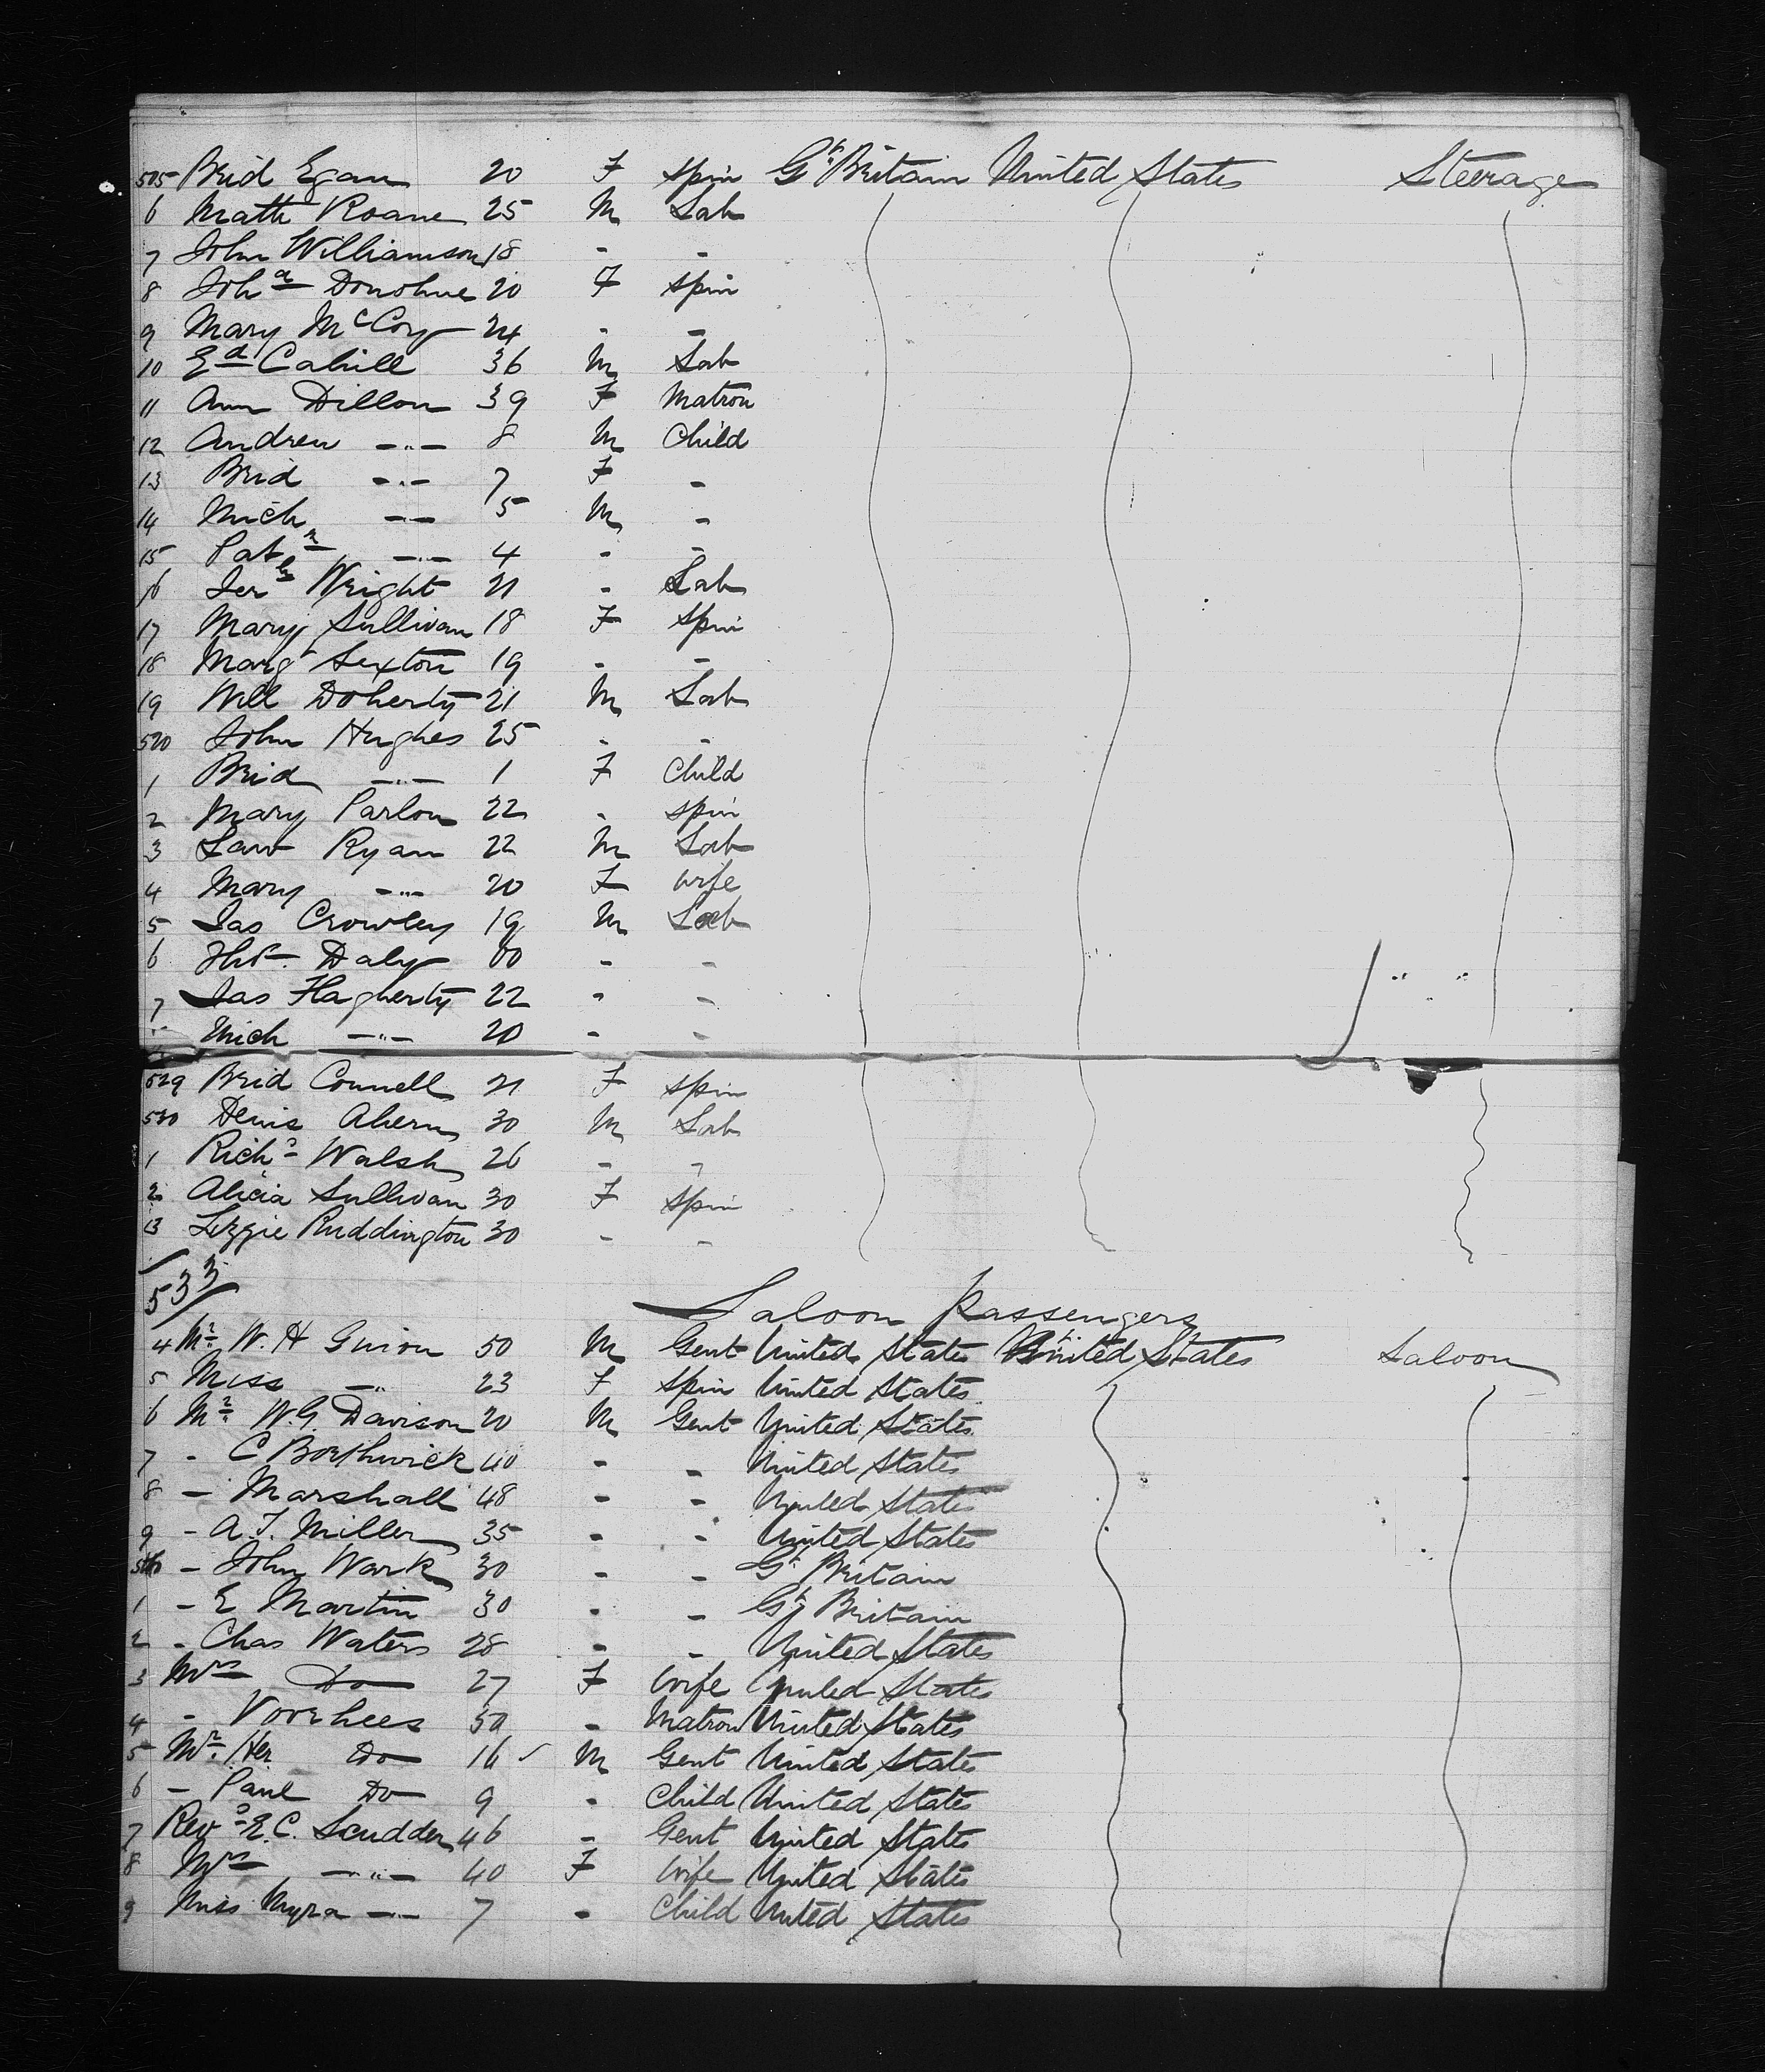 505 Brid Egan 20 F Spin Gt Britain United States Steerage
6 Math Roane 25 M Lab
7 John Williamson 18 - -
8 Joha Donohue 20 F Spin
9 Mary McCoy 24 - -
10 Ed Cahill 36 M Lab
11 Ann Dillon 39 F Matron
12 Andrew -"- 8 M Child
13 Brid -"- 7 F -
14 Mich -"- 5 M -
15 Pat -"- 4 - -
16 Jerh Wright 21 - Lab
17 Mary Sullivan 18 F Spin
18 Margt Sexton 19 - -
19 Will Doherty 21 M Lab
520 John Hughes 25 - -
1 Brid -"- 1 F Child
2 Mary Parlon 22 - Spin
3 Law Ryan 22 M Lab
4 Mary -"- 20 F Wife
5 Jas Crowley 19 M Lab
6 Daly - -
7 Jas Flagherty 22 - -
Mich -"- 20 - -
529 Brid Connell 21 F Spin
530 Denis Ahern 30 M Lab
1 Richd Walsh 26 - -
2 Alicia Sullivan 30 F Spin
3 Lizzie Ruddington 30 - -
533
Saloon Passengers
4 Mr W. H Guion 50 M Gent United States United States Saloon
5 Miss -"- 23 F Spin United States
6 Mr W.G Davison 20 M Gent United States
7 - C Borthwick 40 - - United States
8 - Marshall 48 - - United States
9 - A.J. Miller 35 - - United States
540 - John Wark 30 - - Gt Britain
1 - E Martin 30 - - Gt Britain
2 - Chas Waters 28 - - United States
3 Mrs Do 27 F Wife United States
4 - Voorhees 50 - Matron United States
5 Mr Her Do 16 M Gent United States
6 - Paul Do 9 - Child United States
7 Revd E.C. Scudder 46 - Gent United States
8 Mrs -"- 40 F Wife United States
9 Miss Myra -"- 7 - Child United States